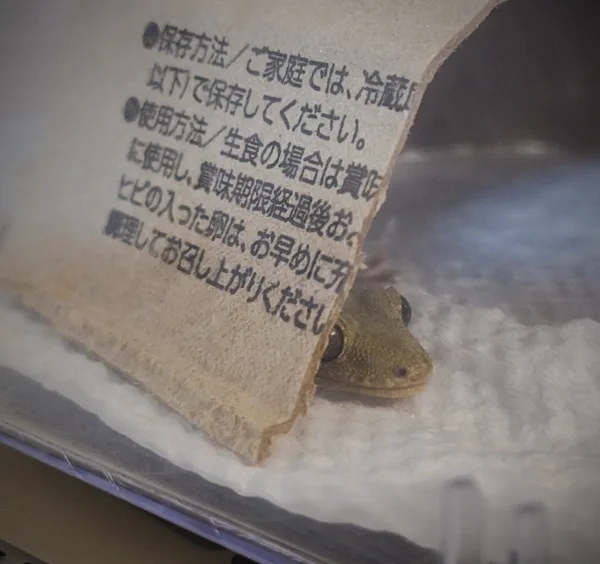 ●保存方法/ご家庭では、冷蔵
以下)で保存してください。
●使用方法/生食の場合は賞味
に使用し、賞味期限経過後お
ヒビの入った卵は、お早めに充
調理してお召し上がりください